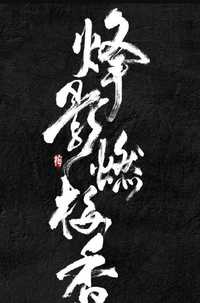 烽影燃梅香